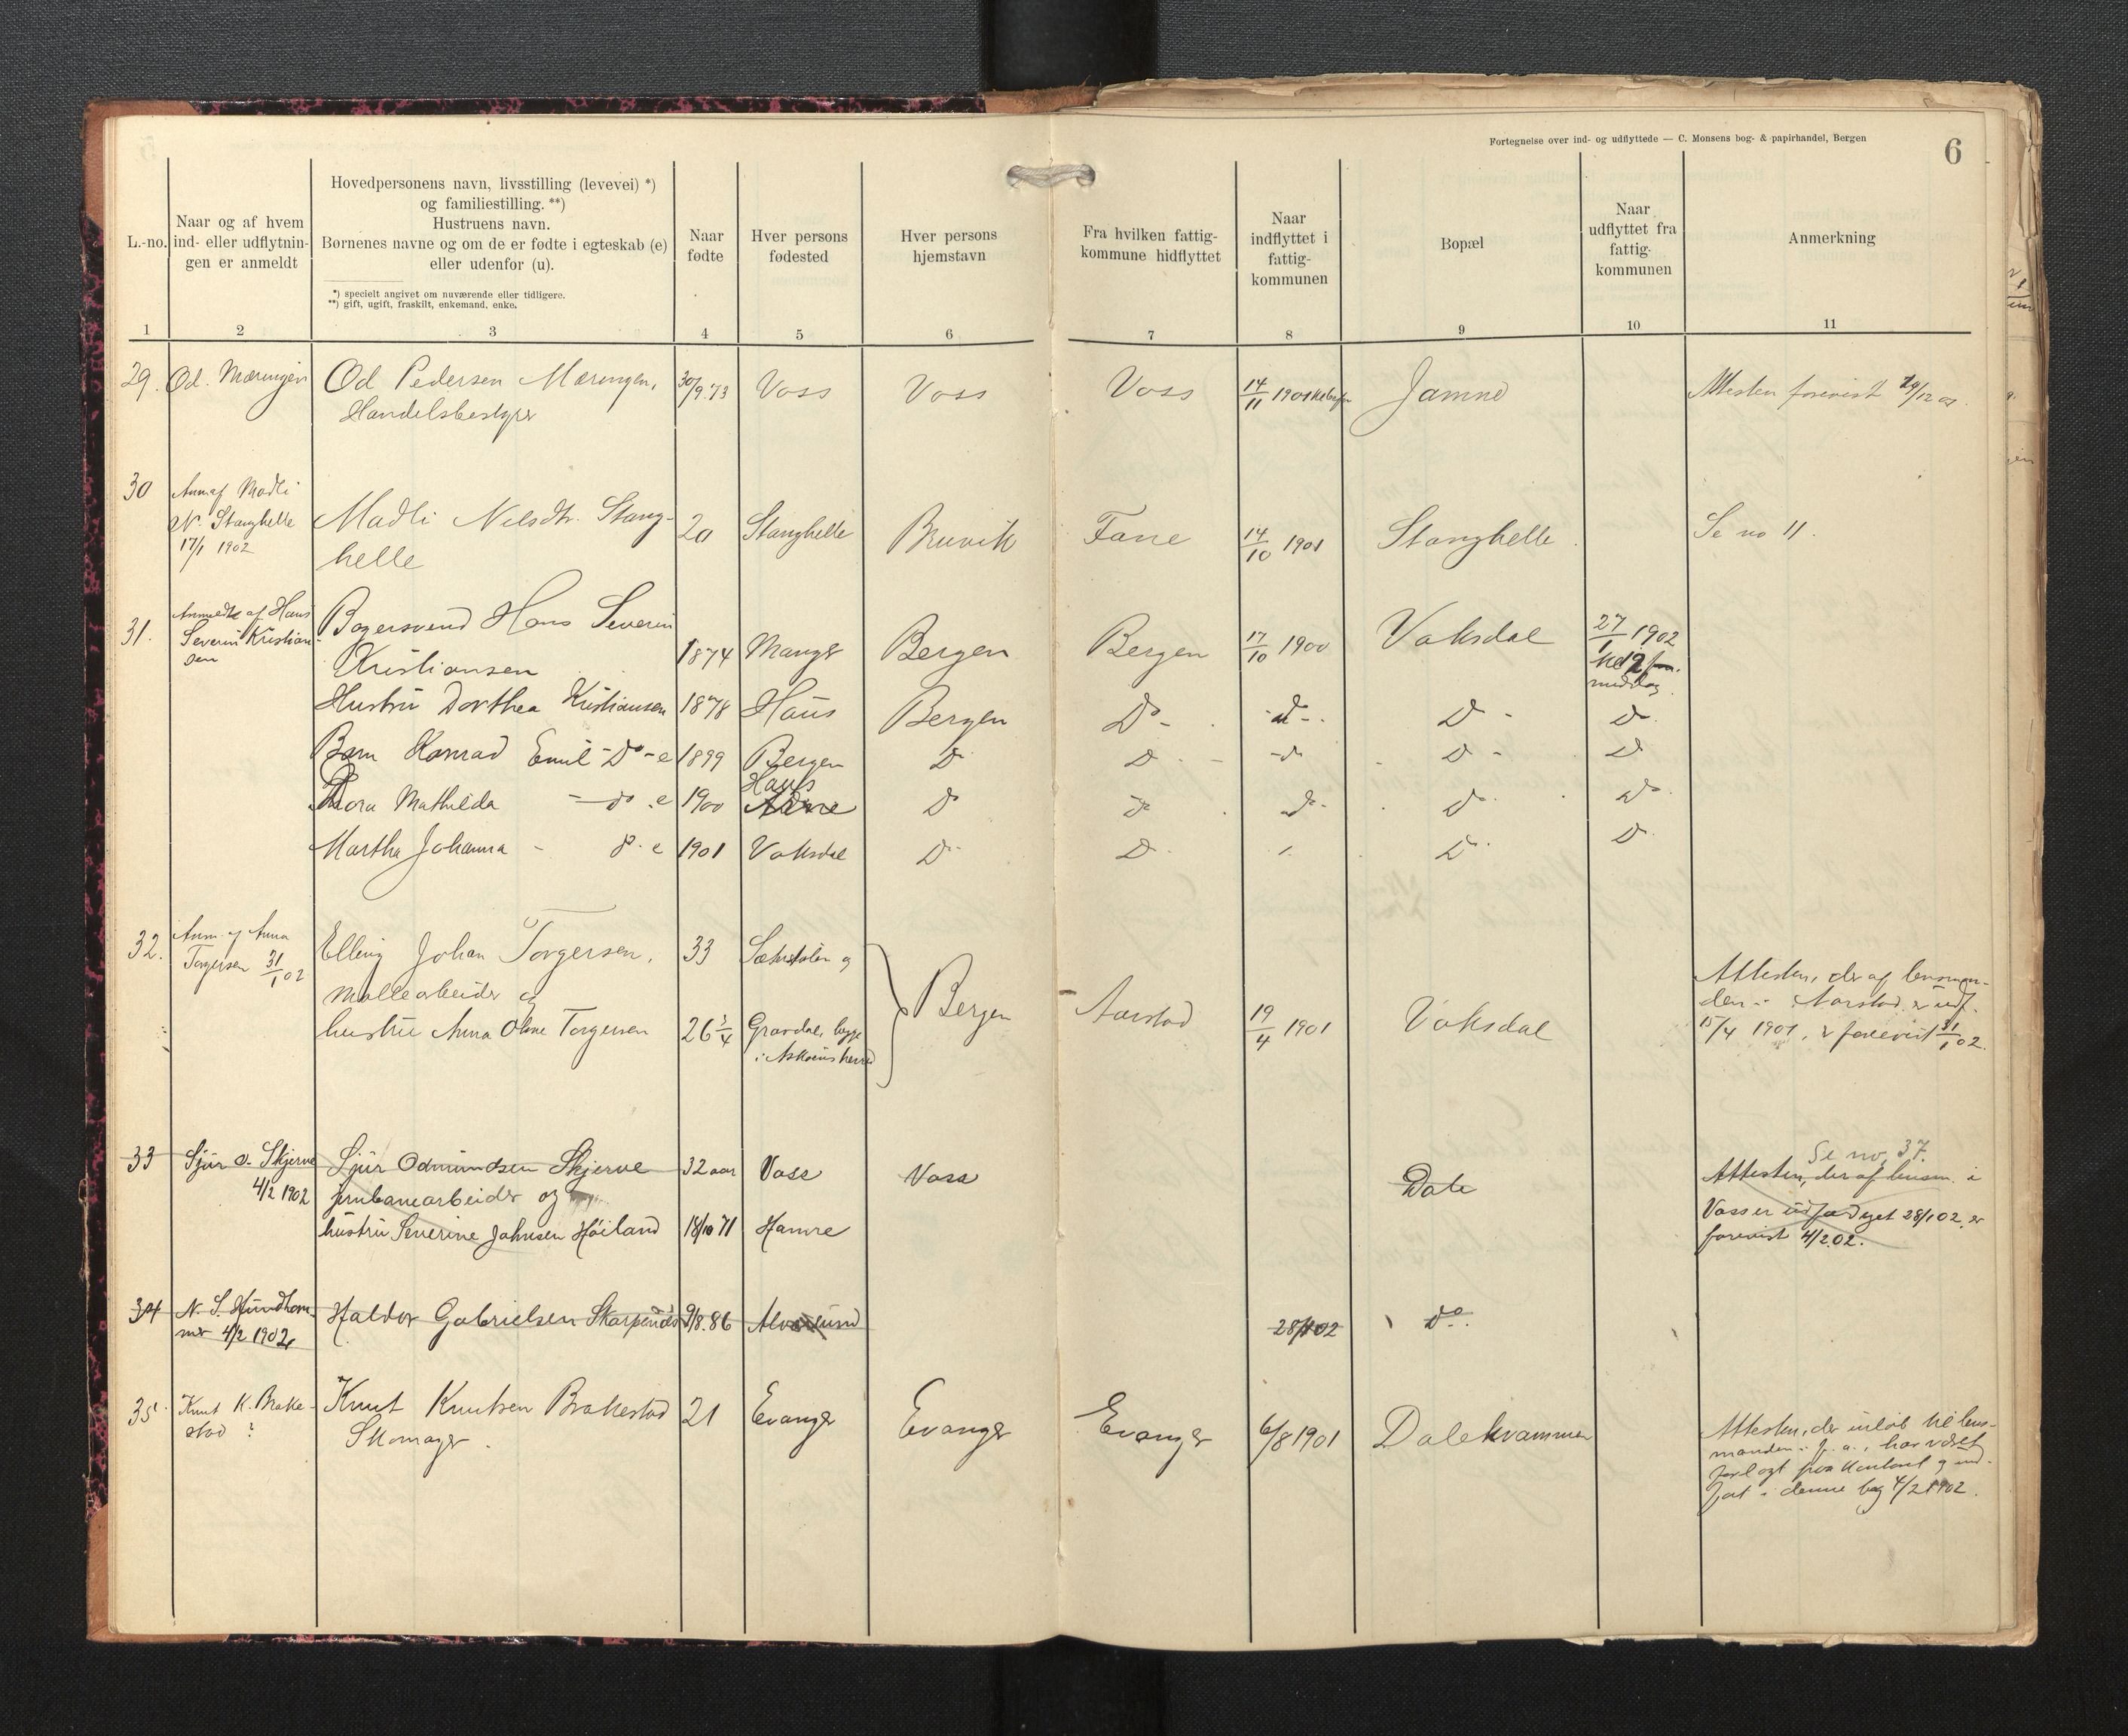 Fortegnelse over ind- og udflyttede — C. Monsens bog- & papirhandel, Bergen
6
L.-no.
Naar og af hvem
ind- eller udflytnin-
gen er anmeldt
Hovedpersonens navn, livsstilling (levevei) *)
og familiestilling. **)
Hustruens navn.
Børnenes navne og om de er fødte i egteskab (e)
eller udenfor (u).
*) specielt angivet om nuværende eller tidligere.
**) gift, ugift, fraskilt, enkemand, enke.
Naar
fødte
Hver persons
fødested
Hver persons
hjemstavn
Fra hvilken fattig-
kommune hidflyttet
Naar
indflyttet i
fattig-
kommunen
Bopæl
Naar
udflyttet fra
fattig-
kommunen
Anmerkning
1 2 3 4 5 6 7 8 9 10 11
29. Od. Mæringen Od Pedersen Mæringen, 30/9.73 Voss Voss Voss 14/11 1901 Jamne Attesten forevist /12 01.
Handelsbestyrer
30 Anm af Madli
N. Stanghelle Madli Nilsdtr. Stang- 20 Stanghelle Bruvik Fane 14/10 1901 Stanghelle Se no 11.
17/1 1902
helle
31. Anmeldt af Hans Bagersvend Hans Severin
Severin Kristian-
sen
Kristiansen 1874 Manger Bergen Bergen 17/10 1900 Vaksdal 27/1 1902
middag.
Hustru Dorthea Kristiansen 1878 Haus Bergen Do - do - Do - Do
Barn Konrad Emil - Do - e 1899 Bergen Do Do - do Do - Do
Haus
Thora Mathilda - do . e 1900 Do Do do - Do Do
Martha Johanna - do . e 1901 Vaksdal Do Do Do Do
32. Anm. af Anna
Torgersen 31/1 02 Elling Johan Torgersen, 33 og
Møllearbeider og
hustru Anna Oline Torgersen 26 3/4 Gravdal, begge
i Askøens herred
Bergen Aarstad 19/4 1901 Vaksdal
Attesten, der af lensman-
den i Aarstad er udf.
15/4 1901, er forevist 31/1 02.
33 Sjur O. Skjerve Sjur Odmundsen Skjerve 32 aar Voss Voss Dale
4/2 1902 jernbanearbeider og
hustru Severine Johnsen Høiland 18/10 71 Hamre
Se no, 37.
Attesten, der af lensm. i
Voss er udfærdiget 28/1 02, er
forevist 4/2 02.
34 N. S. Hundham- Haldor Gabrielsen 9/8.86 Alversund 28/1 02 do
mer 4/2 1902
35 Knut K. Brake- Knut Knutsen Brakestad 21 Evanger Evanger Evanger 6/8 1901 Dalekvammen
stad ? Skomager.
Attesten, der indløb til lens-
manden i f. a., har været
forlagt paa kontoret og ind-
ført i denne bog 4/2 1902.